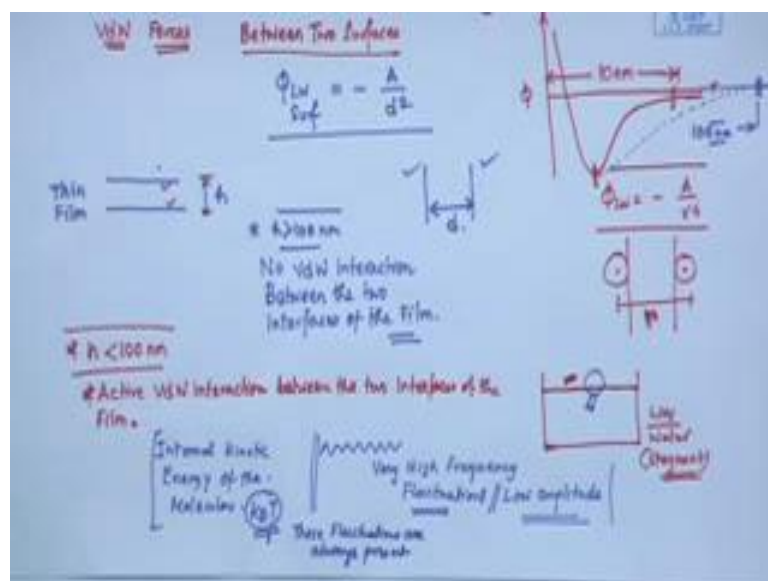 VdW Forces Between Two Surfaces
Φ_LW Surf = - A/d²
10 nm
Φ
100 nm
Φ_LW = - A/r⁶
Thin
Film
h
d
* h>100 nm
No VdW Interaction
Between the two
Interfaces of the Film.
r
* h <100 nm
* Active VdW interaction between the two Interfaces of the
Film.
Internal Kinetic
Energy of the
Molecules k_BT
Very High Frequency
Fluctuations // Low amplitude
These Fluctuations are
always present
Water
(Stagnant)